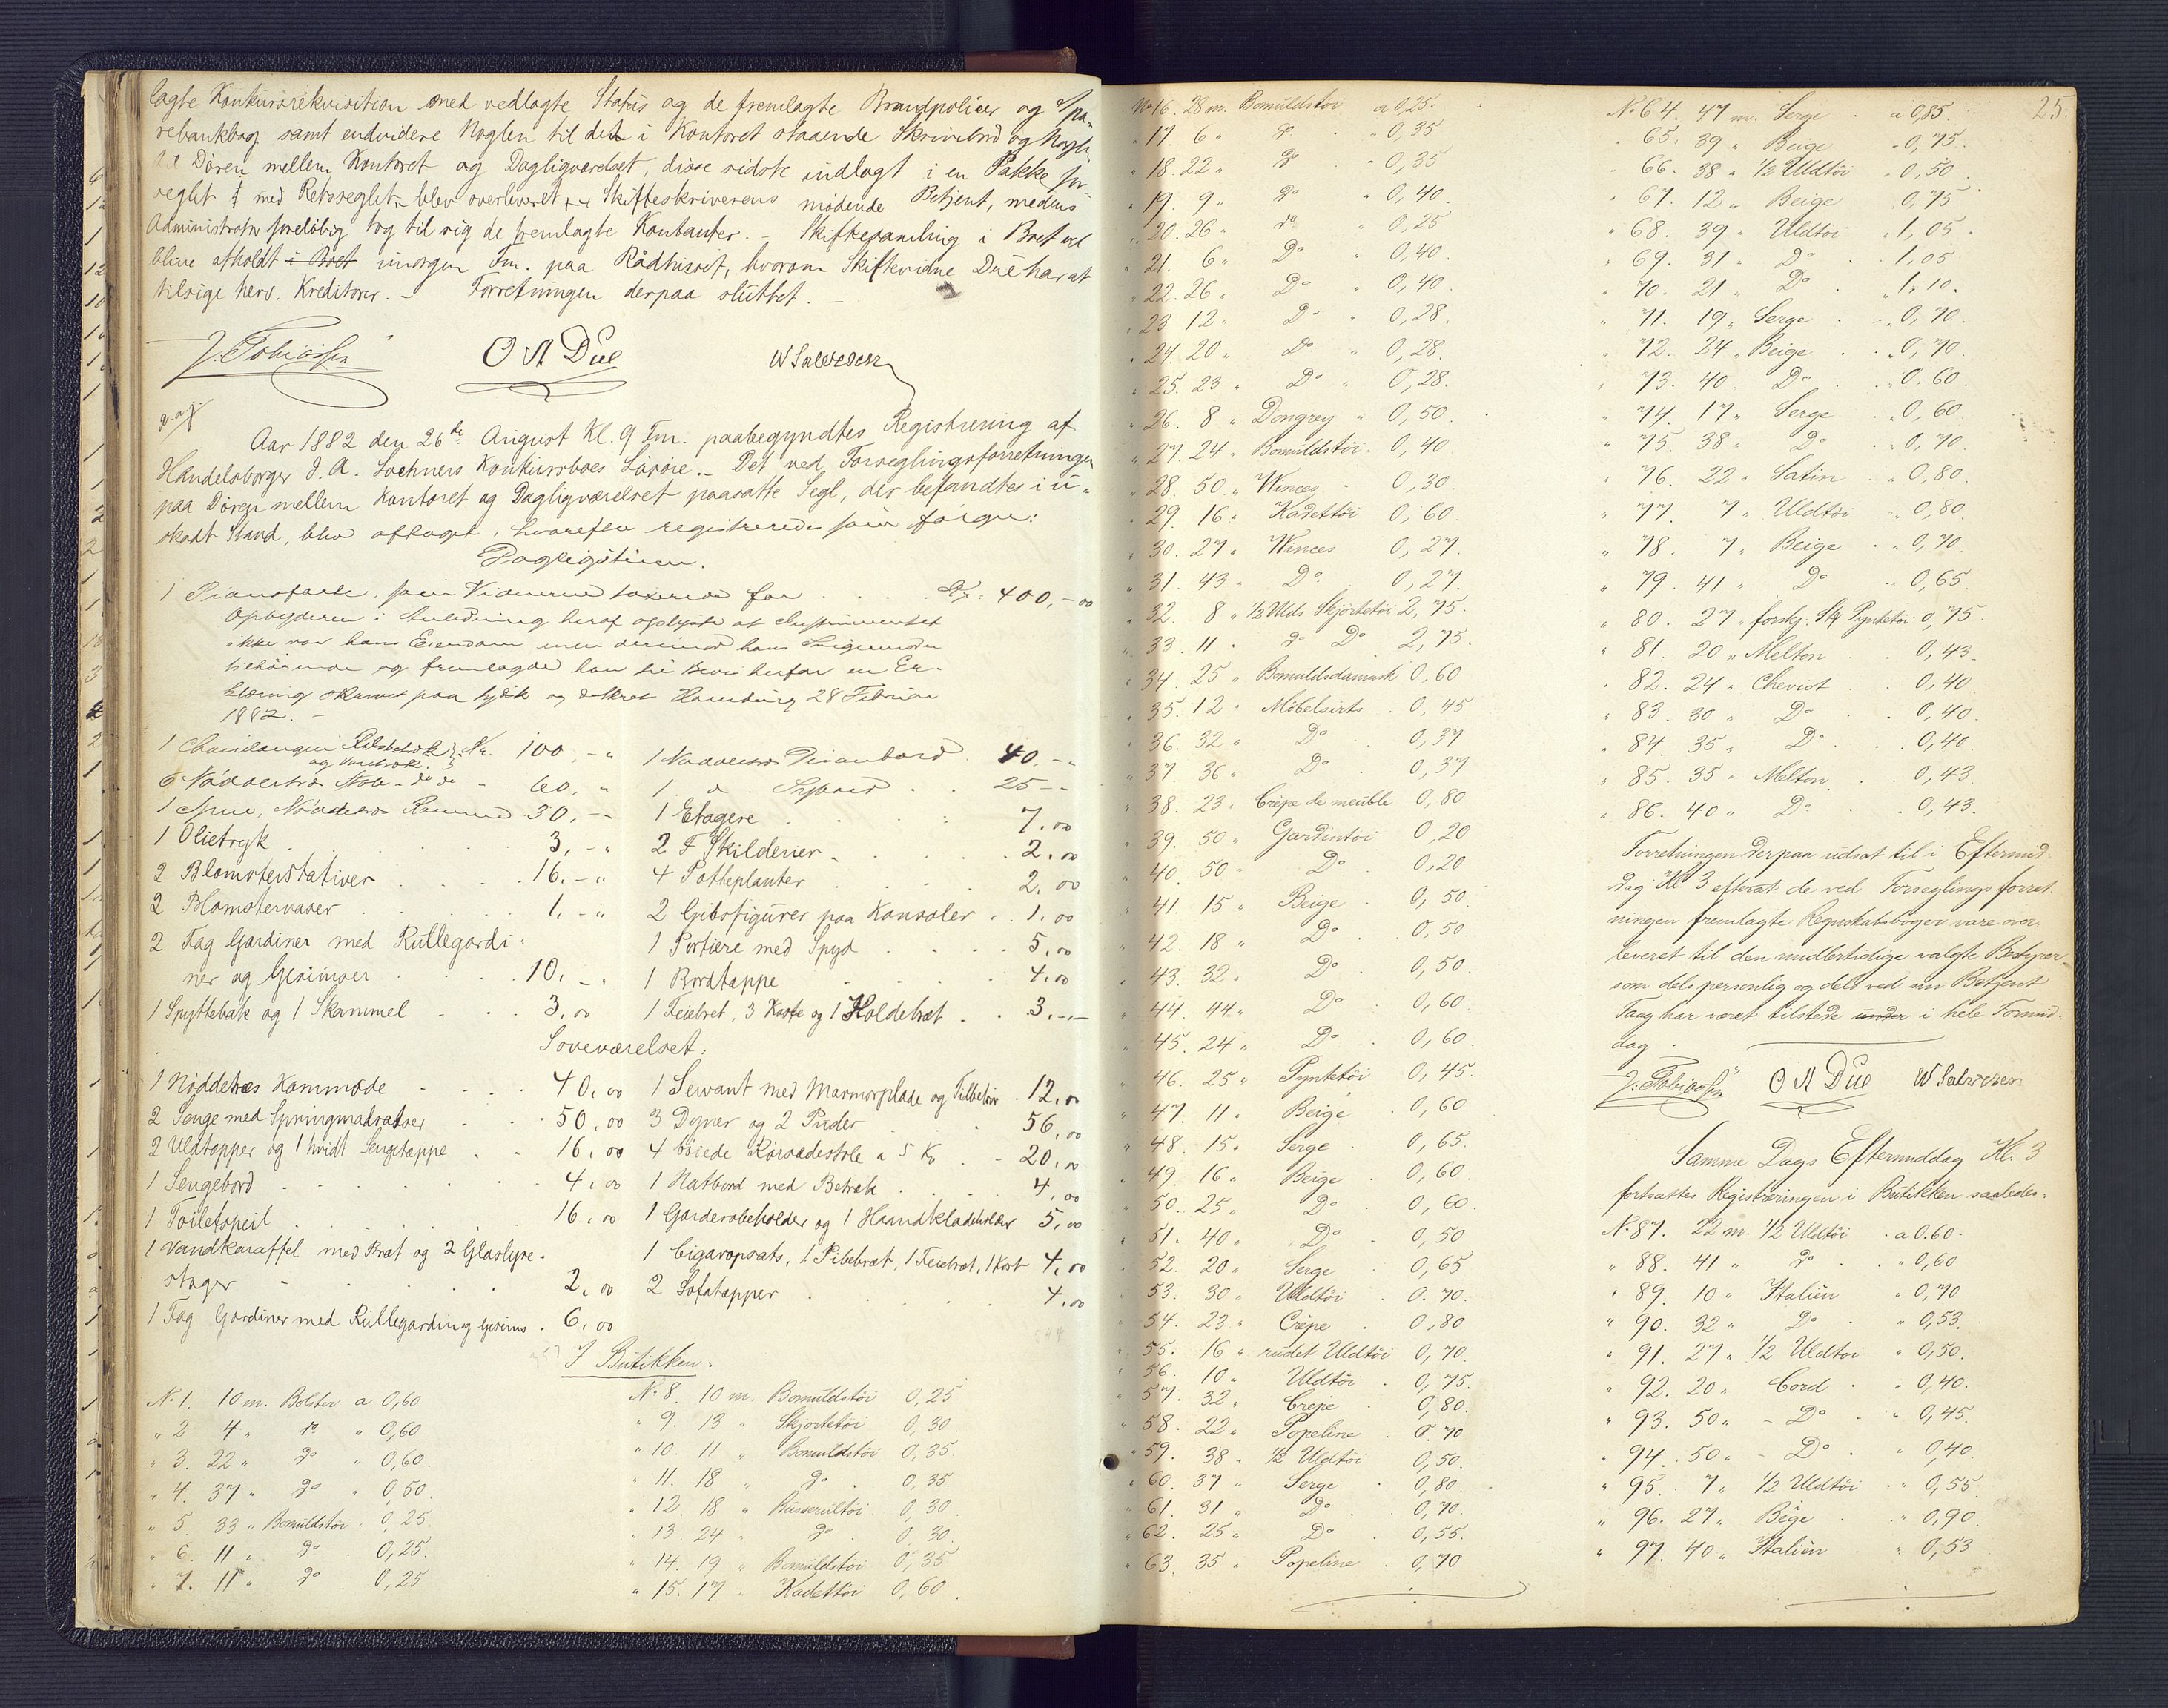 lagte Konkursrekvisition med vedlagte Status og de fremlagte Brandpolicer og Spa-
rebankbog samt endvidere Nøglen til det i Kontoret staaende Skrivebord og Nøglen
til Døren mellem Kontoret og Dagligværelset, disse sidste indlagt i en Pakke for-
seglet med Retsseglet blev overleveret Skifteskriverens mødende Betjent, medens
Administrator foreløbig tog til sig de fremlagte Kontanter. – Skiftesamling i Boet vil
blive afholdt i Boet imorgen Fm. paa Rådhuset, hvorom Skiftevidne Due har at
tilsige herv. Kreditorer. – Forretningen derpaa sluttet. –
J. Tobiassen O A Due W Salvesen
Aar 1882 den 26de August Kl. 9 Fm. paabegyndtes Registrering af
Handelsborger J. A. Lochners Konkursboes Løsøre. – Det ved Forseglingsforretningen
paa Døren mellem Kontoret og Dagligværelset paasatte Segl, der befandtes i u-
skadt Stand, blev aftaget, hvorefter registreredes som følger:
Dagligstuen.
1 Pianoforte, som Vidnerne taxerede for . . . . Kr. 400,-00
Opbyderen i Anledning heraf oplyste at Instrumentet
ikke var hans Eiendom men derimod hans
tilhørende og fremlagde han til Bevis herfor en Er-
klæring skrevet paa tydsk og dateret Hamburg 28 Februar
1882. –
1 Chaiselongue Ridsbetræk og Voxdræk Kr. 100,-" 1 Nøddetræs Divanbord . 40,-"
6 Nøddetræs Stole - do do - 60,-" 1 d. Sybord . . 25--
1 Speil, Nøddetræs Ramme 30,-- 1 Etagere . . . 7.00
1 Olietryk . . . . 3,-" 2 Skilderier . . . . 2.00
2 Blomsterstativer . . . . 16.-" 4 Potteplanter . . . . 2.00
2 Blomstervaser . . . . 1.-" 2 Gibsfigurer paa Konsoler . . 1.00
2 Fag Gardiner med Rullegardi- 1 Portiere med Spyd . . . . 5.00
ner og Gesimser . . . . 10.-. 1 Bordteppe . . . . 4.00
1 Spyttebak og 1 Skammel . . . 3.00 1 Feiebret, 3 Koste og 1 Holdebræt . . 3.--
Soveværelset.
1 Nøddetræs Kommode . . . 40.00 1 Servant med Marmorplade og Tilbehør . 12.00
2 Senge med Springmadratser . . 50.00 3 Dyner og 2 Puder . . . 56.00
2 Uldtæpper og 1 hvidt Sengetæppe . . 16.00 4 bøiede Rørsædestole a 5 Kr . . 20.00
1 Sengebord . . . . 4.00 1 Natbord med Betræk . . . . 4.00
1 Toiletspeil . . . . 16.00 1 Garderobeholder og 1 Haandklædeholder 5.00
1 Vandkaraffel med Bræt og 2 Glaslyse- 1 Cigaropsats, 1 Pibebræt, 1 Feiebræt, 1 Kost 4.00
stager . . . . 2.00 2 Sofatæpper . . . . 4.00
1 Fag Gardiner med Rullegardin og Gesims . 6.00
I Butikken.
No 1. 10 m. Bolster a 0,60
" 2 4 " do " 0,60
" 3. 22 " do " 0,60.
" 4. 37 " do " 0,50.
" 5. 33 " Bomuldstøi . 0,25.
" 6. 11 " do . 0,25.
" 7. 11 " do . 0,25
No 8. 10 m. Bomuldstøi 0,25
" 9. 13 " Skjortetøi 0,30.
" 10. 11 " Bomuldstøi 0,35.
" 11. 18 " do . 0,35.
" 12. 18 " Busserultøi 0,30
" 13. 24 " do . 0,30
" 14. 19 " Bomuldstøi 0,35
" 15. 17 " Kadettøi 0,60.
No 16. 28 m. Bomuldstøi a 0,25.
" 17. 6 " do . " 0,35
" 18. 22 " do " 0,35
" 19. 9 " do " 0,40.
" 20. 26 " do " 0,25
" 21. 6 " Do " 0,40.
" 22. 26 " Do " 0,40.
" 23 12 " Do " 0,28.
" 24. 20 " Do " 0,28.
" 25. 23 " Do " 0,28.
" 26. 8 " Dongrey " 0,50.
" 27. 24 " Bomuldstøi . 0,40
" 28. 50 " Winces . 0,30
" 29. 16 " Kadettøi 0,60.
" 30. 27 " Winces 0,27.
" 31. 43 " Do . 0,27.
" 32. 8 " 1/2 Ulds Skjortetøi 2,75.
" 33. 11 " do Do . 2,75.
" 34. 25 " Bomuldsdamask 0,60
" 35. 12 " Møbelsirts . 0,45
" 36. 32 " Do . 0,37
" 37. 36 " Do . 0,37
" 38. 23 " Crêpe de meuble 0,80
" 39. 50 " Gardintøi 0,20
" 40. 50 " Do . 0,20
" 41. 15 " Beige . 0,50.
" 42. 18 " Do . 0,50.
" 43. 32 " Do . 0,50.
" 44. 44 " Do . 0,60.
" 45. 24 " Do . 0,60.
" 46. 25 " Pyntetøi 0,45.
" 47. 11 " Beige . 0,60
" 48. 15 " Serge . 0,65.
" 49. 16 " Beige . 0,60.
" 50. 25 " Do . 0,60.
" 51. 40 " Do . 0,50
" 52. 20 " Serge . 0,65
" 53. 30 " Uldtøi . 0.70.
" 54. 23 " Crêpe . 0,80
" 55. 16 " rudet Uldtøi 0,70.
" 56. 10 " Uldtøi . 0,75.
" 57. 32 " Crêpe . 0,80.
" 58. 22 " Popeline . 0.70
" 59. 38 " 1/2 Uldtøi 0,50.
" 60. 37 " Serge . 0,80.
" 61. 31 " Do . 0,70.
" 62. 25 " Do . 0,55.
" 63. 35 " Popeline . 0,70
25.
No 64. 47 m. Serge . a 0,85.
" 65. 39 " Beige . 0,75.
" 66. 38 " 1/2 Uldtøi . 0,50
" 67. 12 " Beige . 0,75
" 68. 39 " Uldtøi . 1,05.
" 69. 31 " Do . 1,05
" 70. 21 " Do . 1,10.
" 71. 19 " Serge . . 0,70.
" 72. 24 " Beige . . 0,70.
" 73. 40 " Do . . 0.60
" 74. 17 " Serge . 0,60.
" 75. 38 " Do . 0,70.
" 76. 22 " Satin . 0,80.
" 77. 7 " Uldtøi . 0,80.
" 78. 7 " Beige . . 0,70.
" 79. 41 " Do . 0,65.
" 80. 27 " forskj. Pyntetøi 0,75.
" 81. 20 " Melton . 0,43.
" 82. 24 " Cheviot . 0,40.
" 83. 30 " Do . 0,40.
" 84. 35 " Do . 0,40.
" 85. 35 " Melton . . 0,43.
" 86. 40 " Do . 0,43.
Forretningen derpaa udsat til i Eftermid-
dag Kl 3 efterat de ved Forseglingsforret-
ningen fremlagte Regnskabsbøger vare over-
leveret til den midlertidige valgte Bestyrer
som dels personlig og dels ved sin Betjent
Faag har været tilstede under i hele Formid-
dag.
J. Tobiassen O A Due W Salvesen
Samme Dags Eftermiddag Kl. 3
fortsattes Registreringen i Butikken saaledes:
No 87. 22 m. 1/2 Uldtøi . a 0.60.
" 88. 41 " do . " 0,60
" 89. 10 " Italien " 0,70
" 90. 32 " Do . " 0,53.
" 91. 27 " 1/2 Uldtøi " 0,50.
" 92. 20 " Cord . " 0,40.
" 93. 50 " - Do . " 0,45.
" 94. 50 " - Do . " 0,40
" 95. 7 " 1/2 Uldtøi . " 0,55.
" 96. 27 " Bège . " 0,90.
" 97. 40 " Italien . " 0,53